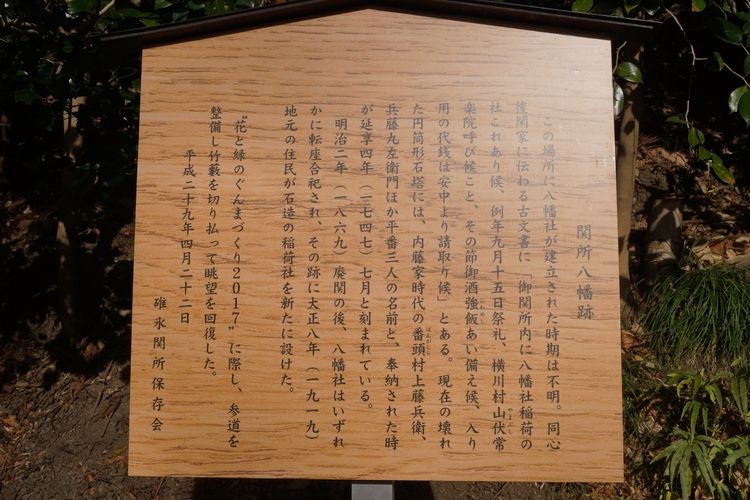 関所八幡跡
この場所に八幡社が建立された時期は不明。同心
後関家に伝わる古文書に「御関所内に八幡社稲荷の
社これあり候、例年九月十五日祭礼、横川村山伏常
やまぶし
楽院呼び候こと、その節御酒強飯あい備え候、入り
こわめし
用の代銭は安中より請取り候」とある。現在の壊れ
た円筒形石塔には、内藤家時代の番頭村上藤兵衛、
ばんがしら
兵藤九左衛門ほか平番三人の名前と、奉納された時
が延享四年（一七四七）七月と刻まれている。
明治二年（一八六九）廃関の後、八幡社はいずれ
かに転座合祀され、その跡に大正八年（一九一九）
地元の住民が石造の稲荷社を新たに設けた。
“花と緑のぐんまづくり2017”に際し、参道を
整備し竹藪を切り払って眺望を回復した。
平成二十九年四月二十二日
碓氷関所保存会